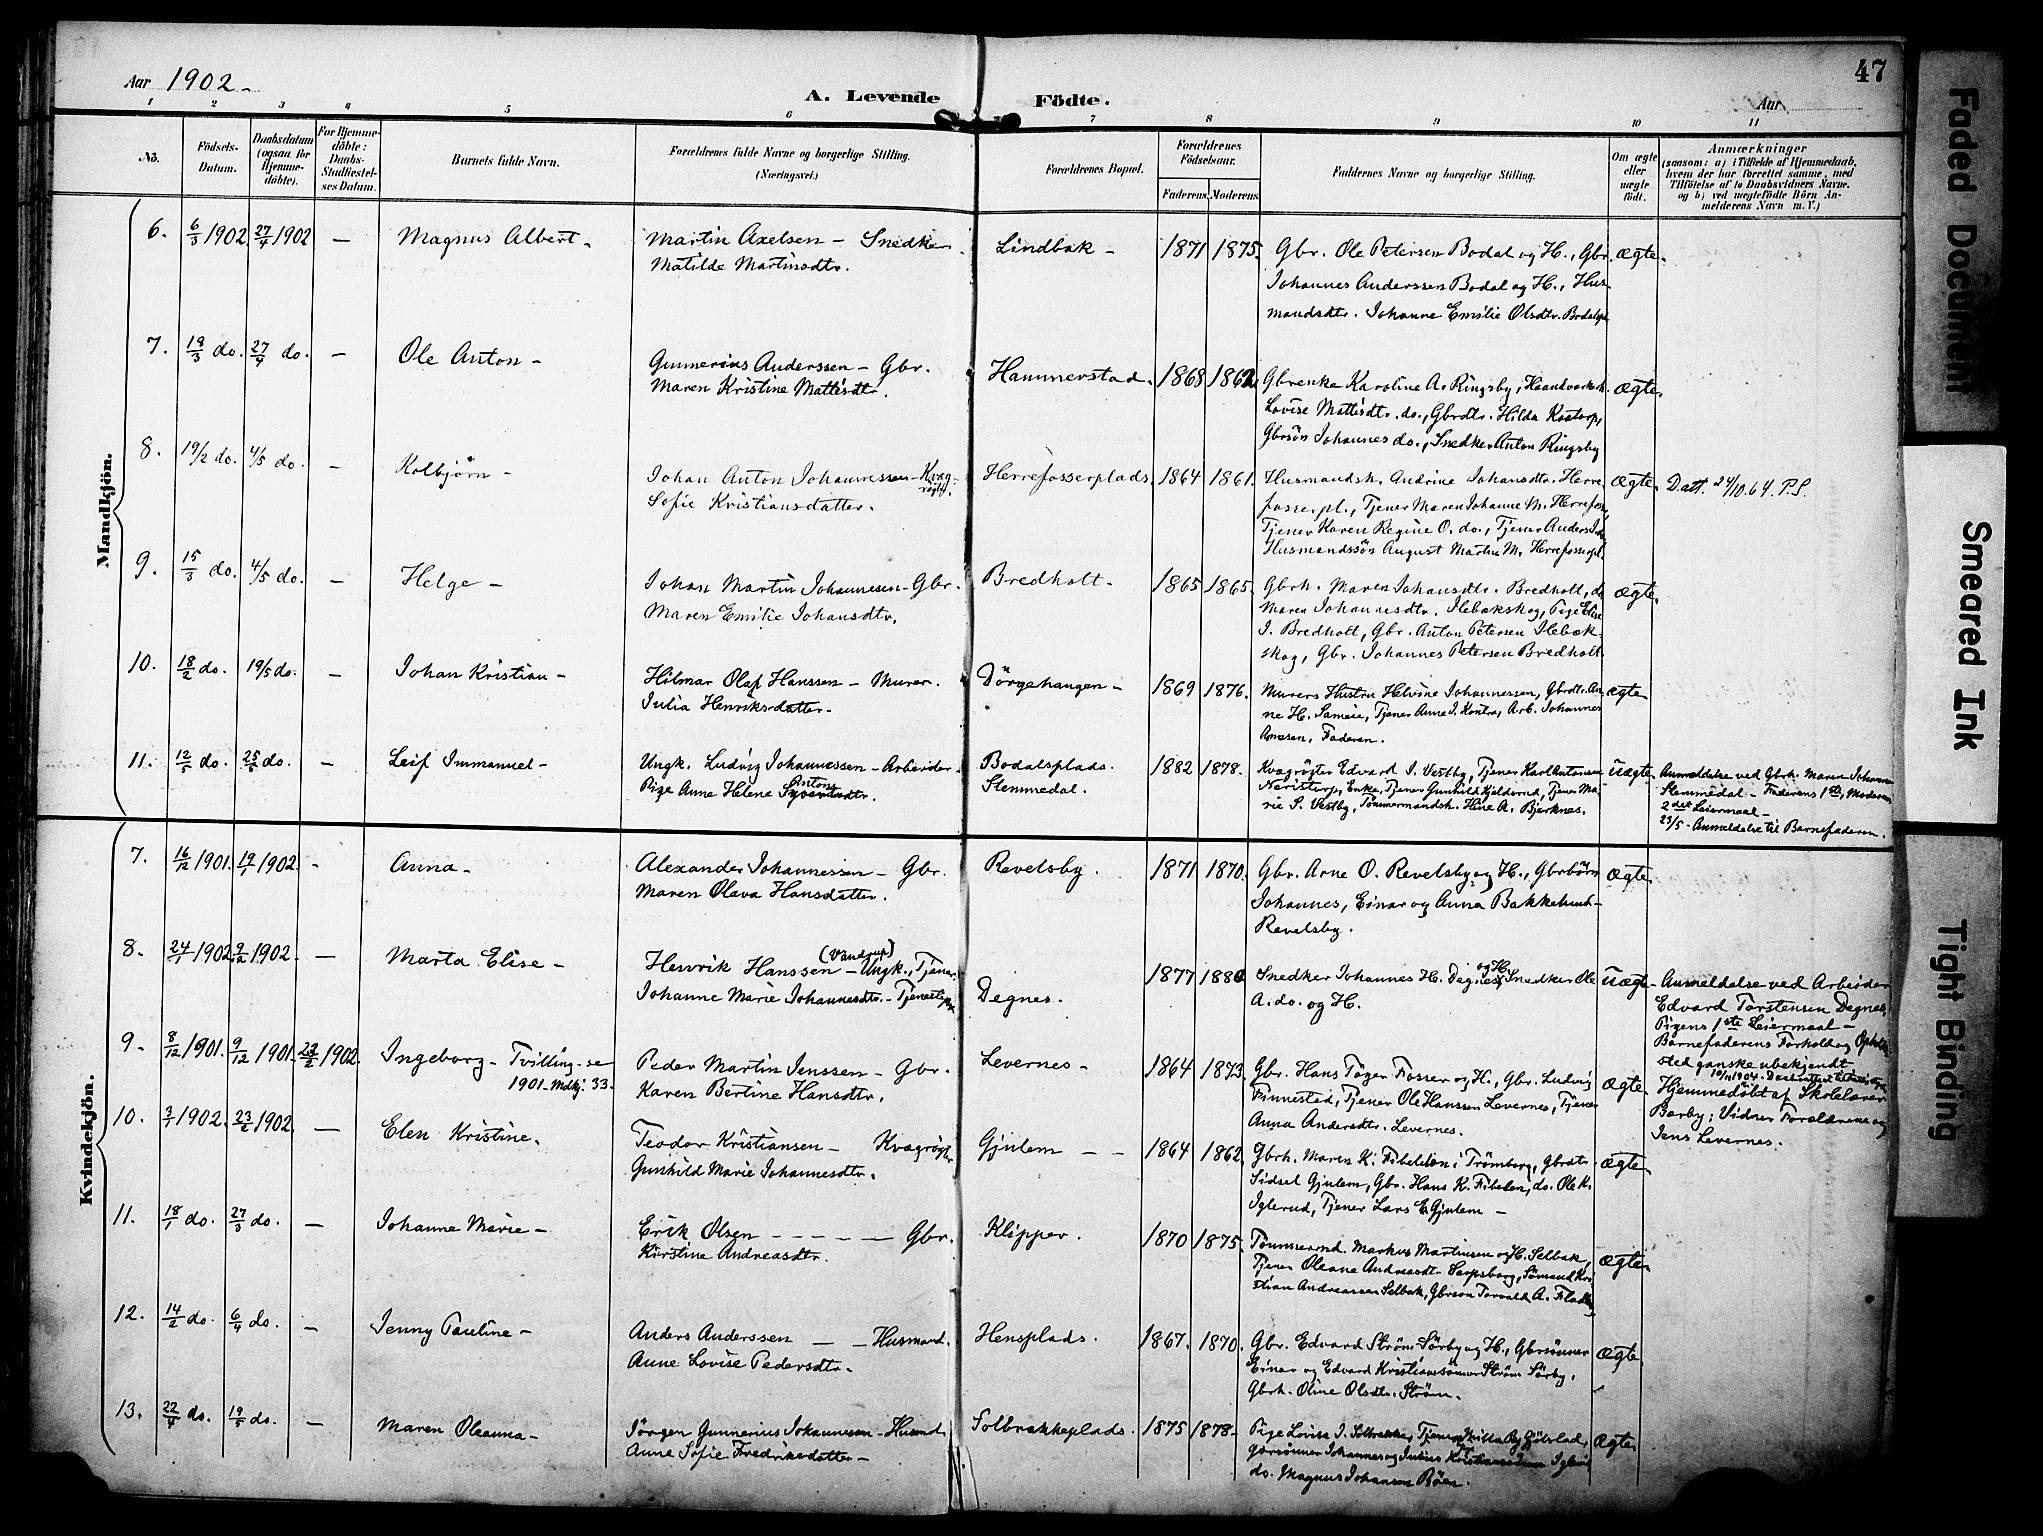 Aar 1902.
A. Levende Födte.
Aar
47
1 2 3 4 5 6 7 8 9 10 11
No.
Födsels-Datum.
Daabsdatum (ogsaa for Hjemme-döbte).
For Hjemme-döbte: Daabs-Stadfæstel-ses Datum.
Barnets fulde Navn.
Forældrenes fulde Navne og borgerlige Stilling. (Næringsvei.)
Forældrenes Bopæl.
Forældrenes Födselsaar.
Faderens. Moderens.
Faddernes Navne og borgerlige Stilling.
Om ægte eller uægte födt.
Anmærkninger
(saasom: a) i Tilfælde af Hjemmedaab,
hvem der har forrettet samme, med
Tilföielse af to Daabsvidners Navne,
og b) ved uægtefödte Börn An-
melderens Navn m. V.)
Mandkjön.
6. 6/3 1902 27/4 1902 — Magnus Albert - Martin Axelsen - Snedker Lindbak - 1871 1875. Gbr. Ole Petersen Bodal og H., Gbr. ægte.
Matilde Martinsdtr. Johannes Anderssen Bodal og H., Hus-
mandsdtr. Johanne Emilie Olsdtr. Bodalspl
7. 19/3 do. 27/4 do. — Ole Anton - Gunnerius Anderssen - Gbr. Hammerstad. 1868 1862 Gbrenke Karoline A. Ringsby, ægte.
Maren Kristine Mattisdtr. Lovise Mattisdtr. do., Gbrdtr. Hilda Kastorp,
Gbrsön Johannes do., Snedker Anton Ringsby
8. 19/2 do. 4/5 do. — Kolbjörn - Johan Anton Johannessen - Kvæg-røgter. Herrefosserplads. 1864 1861. Husmandsh. Andrine Johansdtr. Herre- ægte. Dat. 24/10.64. P.S.
Sofie Kristiansdatter. fosserpl., Tjener Maren Johanne M. Herrefoss.,
Tjener Karen Regine O. do., Tjener Anders
Husmandssön August Martin M. Herrefosserpl.
9. 15/3 do. 4/5 do. — Helge - Johan Martin Johannesen - Gbr. Bredholt - 1865 1865. Gbrh. Maren Johansdtr. Bredholt, do ægte.
Maren Emilie Johansdtr. Maren Johannesdtr. Ilebækskog, Pige Elise
J. Bredholt, Gbr. Anton Petersen Ilebæk-
skog, Gbr. Johannes Petersen Bredholt.
10. 18/2 do. 19/5 do. — Johan Kristian - Hilmar Olaf Hanssen - Murer. Dörgehaugen - 1869 1876. Murers Hustru Helvine Johannessen, Gbrdtr. An- ægte
Julia Henriksdatter. ne H. Sameie, Tjener Anna J. Kontra, Arb. Johannes
Faderen.
11. 12/5 do. 25/5 do. — Leif Immanuel - Ungk. Ludvig Johannessen - Arbeider. Bodalsplads. 1882 1878. Kvægrøgter Edvard J. Vestby, Tjener Karl Antonsen uægte Anmeldelse ved Gbrh. Maren
Pige Anne Helene Antons Stemmedal. Enke, Tjener Gunhild Kjelderud, Tjener Ma- Stemmedal - Faderens 1ste, Moderens
rie S. Vestby, Tömmermandsh. Hine A. Bjerknes. 2det Leiermaal -
23/5 - Anmeldelse til Barnefaderen.
Kvindekjön.
7. 16/12 1901. 19/1 1902. - Anna. Alexander Johannessen - Gbr. Revelsby. 1871 1870. Gbr. Arne O. Revelsby og H., Gbrbörn ægte
Maren Olava Hansdatter. Johannes, Einar og Anna Bakkehus-
Revelsby.
8. 24/1 1902. 9/2 1902. — Marta Elise - Henrik Hanssen - Ungk., Tjener. Degnes. 1877 1880 Snedker Johannes H. Degnes og H., Snedker Ole uægte - Anmeldelse ved Arbeider
Johanne Marie Johannesdtr. - Tjenestepige A. do. og H. Edvard Torstensen Degnes.
Pigens 1ste Leiermaal -
Barnefaderens Forhold og Opholds
sted ganske ubekjendt
9. 8/12 1901. 9/12 1901. 23/2 1902. Ingeborg - Tvilling - se Peder Martin Jenssen - Gbr. Levernes - 1864 1873. Gbr. Hans Töger Fosser og H., Gbr. Ludvig ægte
1901 - Mdkj. 33. Karen Bertine Hansdtr. Finnestad, Tjener Ole Hanssen Levernes, Tjener Hjemmedöbt af Skolelærer
Anna Andersdtr. Levernes. Barby; Vidner Forældrene og
Jens Levernes.
10. 3/1 1902. 23/2 1902. — Elen Kristine. Teodor Kristiansen - Kvægrøgter Gjulem - - 1864 1862. Gbrh. Maren K. Fibelden i Trömborg, Gbrdtr ægte.
Gunhild Marie Johannesdtr. Sidsel Gjulem, Gbr. Hans K. Fibelen, do. Ole K.
Iglerud, Tjener Lars E. Gjulem -
11. 18/1 do. 27/3 do. — Johanne Marie - Erik Olsen - - - - Gbr. Klipper. 1870 1875. Tömmermd. Markus Martinsen og H. Selbak, ægte.
Kirstine Andreasdtr. Tjener Oleane Andreasdtr. Sarpsborg, Sömand Kri-
stian Andreassen Selbak, Gbrsön Torvald A.
12. 14/2 do. 6/4 do. — Jenny Pauline - Anders Anderssen - Husmand. Hensplads. 1867. 1870. Gbr. Edvard Ström Sörby og H., Gbrsönner ægte
Anne Lovise Pedersdtr. Einar og Edvard Kristiansönner Ström Sörby.
Gbrh. Oline Olsdtr. Ström.
13. 22/4 do. 19/5 do. — Maren Oleanna - Jörgen Gunnerius Johannessen - Husmd. Solbrækkeplads. 1875 1878. Pige Lovise J. Solbrække, Tjener Milla ægte
Anne Sofie Fredriksdatter - Gbrsönner Johannes og Julius Kristianssönner
do. Magnus Johansen Böen.
Faded Document
Smeared Ink
Tight Binding